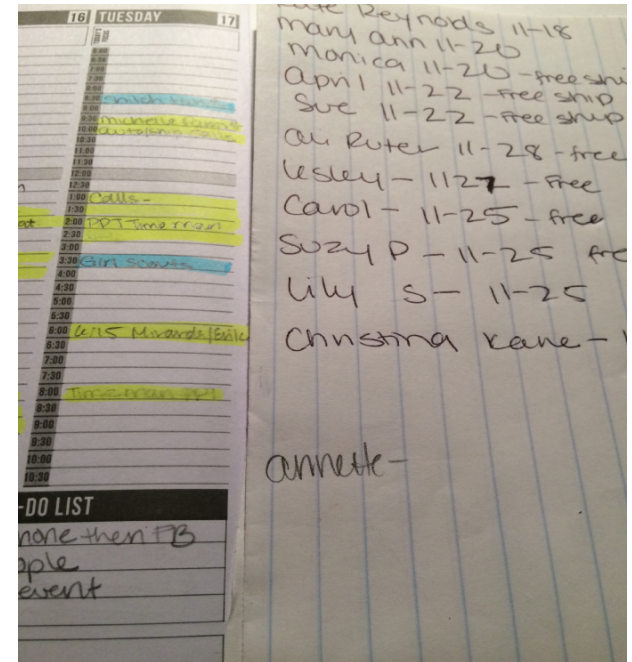 16 TUESDAY 17
8:30 Shiloh
9:30 Michelle
10:00 auto/ship calls
10:30
11:00
11:30
12:00
12:30
1:00 Calls-
1:30
2:00 PPT Time man
2:30
3:00
3:30 Girl Scouts
4:00
4:30
5:00
5:30
6:00 6:15 Miranda/
6:30
7:00
7:30
8:00 Time man PPT
8:30
9:00
9:30
10:00
10:30
-DO LIST
then FB
event
Reynolds 11-18
mary ann 11-20
monica 11-20 - free shi
april 11-22 - free ship
Sue 11-22 - free ship
Ruter 11-28 - free
Lesley - 1127 - free
Carol - 11-25 - free
Suzy P - 11-25 fre
Lily S - 11-25
Christina Kane -
annette -